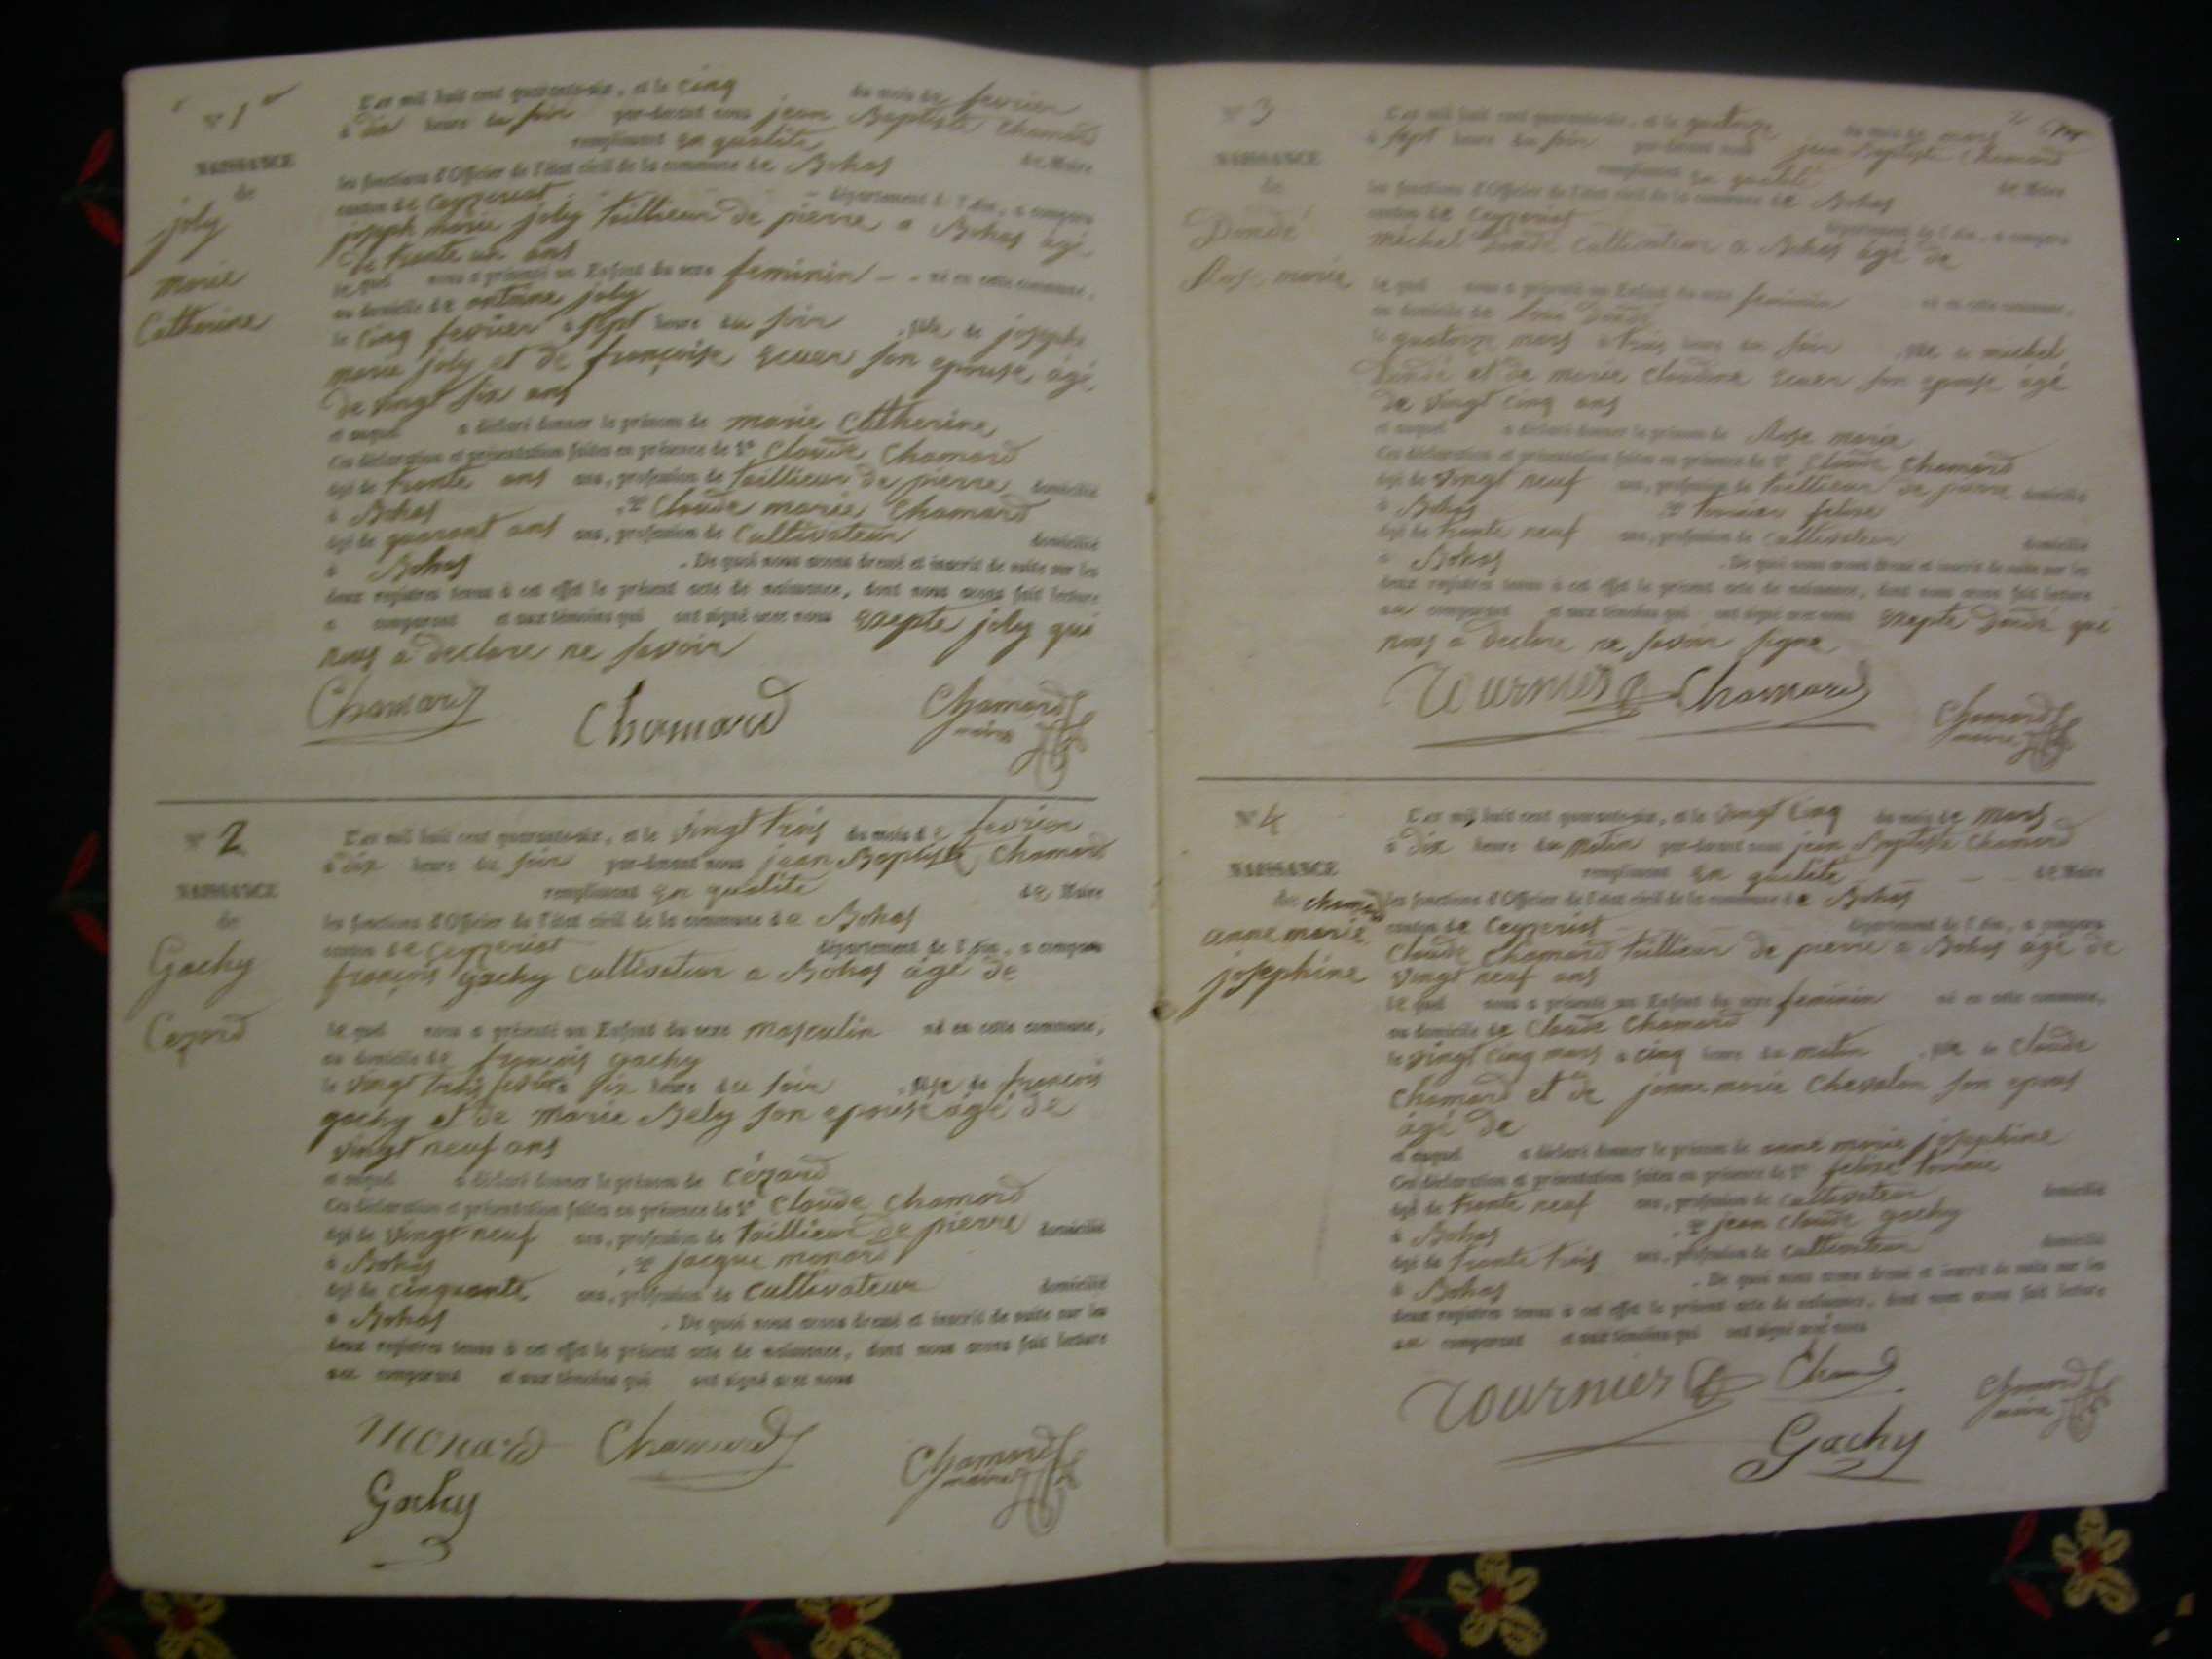 N° 1er
NAISSANCE
de
joly
marie
Catherine
L'an mil huit cent quarante-six, et le cinq du mois de fevrier
à dix heure du soir par-devant nous jean Baptiste Chamard
remplissant en qualité de Maire
les fonctions d'Officier de l'état civil de la commune de Bohas
canton de Ceyzeriat département de l'Ain, a comparu
joseph marie joly taillieur de pierre a Bohas agé
de trante un ans
lequel nous a présenté un Enfant du sexe feminin né en cette commune,
au domicile de antoine joly
le cinq fevrier a sept heure du soir de joseph
marie joly et de françoise ecuer son epouse agé
de vingt six ans
et auquel a déclaré donner le prénom de marie Catherine
Ces déclaration et présentation faites en présence de 1° Claude Chamard
âgé de trante ans ans, profession de taillieur de pierre domicilié
à Bohas 2° Claude marie Chamard
âgé de quarant ans ans, profession de Cultivateur domicilié
à Bohas . De quoi nous avons dressé et inscrit de suite sur les
deux registres tenus à cet effet le présent acte de naissance, dont nous avons fait lecture
a comparant et aux témoins qui ont signé avec nous exepte joly qui
nous a declare ne savoir
Chamard Chamard Chamard
maire
N° 2
NAISSANCE
de
Gachy
Cezard
L'an mil huit cent quarante-six, et le vingt trois du mois de fevrier
à dix heure du soir par-devant nous jean Baptiste Chamard
remplissant en qualité de Maire
les fonctions d'Officier de l'état civil de la commune de Bohas
canton de Ceyzeriat département de l'Ain, a comparu
françois gachy cultivateur a Bohas agé de
lequel nous a présenté un Enfant du sexe masculin né en cette commune,
au domicile de françois gachy
le vingt trois fevrier six heure du soir de françois
gachy et de marie Bely son epouse agé de
vingt neuf ans
et auquel a déclaré donner le prénom de Cézard
Ces déclaration et présentation faites en présence de 1° Claude Chamard
âgé de vingt neuf ans, profession de taillieur de pierre domicilié
à Bohas 2° jacque monard
âgé de cinquante ans, profession de cultivateur domicilié
à Bohas . De quoi nous avons dressé et inscrit de suite sur les
deux registres tenus à cet effet le présent acte de naissance, dont nous avons fait lecture
au comparant et aux témoins qui ont signé avec nous
monard Chamard Chamard
maire
Gachy
N° 3
NAISSANCE
de
Dondé
Rose marie
L'an mil huit cent quarante-six, et le quatorze du mois de mars
à sept heure du soir par-devant nous jean Baptiste Chamard
remplissant en qualité de Maire
les fonctions d'Officier de l'état civil de la commune de Bohas
canton de Ceyzeriat département de l'Ain, a comparu
michel Dondé cultivateur a Bohas agé de
lequel nous a présenté un Enfant du sexe feminin né en cette commune,
au domicile de Dondé
le quatorze mars a trois heure du soir de michel
Dondé et de marie claudine ecuer son epouse agé
de vingt cinq ans
et auquel a déclaré donner le prénom de Rose marie
Ces déclaration et présentation faites en présence de 1° Claude Chamard
âgé de vingt neuf ans, profession de taillieur de pierre domicilié
à Bohas 2° felixe
âgé de trante neuf ans, profession de cultivateur domicilié
à Bohas . De quoi nous avons dressé et inscrit de suite sur les
deux registres tenus à cet effet le présent acte de naissance, dont nous avons fait lecture
au comparant et aux témoins qui ont signé avec nous exepte Dondé qui
nous a declare ne savoir signe
Tournier Chamard Chamard
maire
N° 4
NAISSANCE
de
anne marie
josephine
L'an mil huit cent quarante-six, et le vingt cinq du mois de mars
à dix heure du matin par-devant nous jean Baptiste Chamard
remplissant en qualite de Maire
les fonctions d'Officier de l'état civil de la commune de Bohas
canton de Ceyzeriat département de l'Ain, a comparu
Claude Chamard taillieur de pierre a Bohas agé de
vingt neuf ans
lequel nous a présenté un Enfant du sexe feminin né en cette commune,
au domicile de Claude Chamard
le vingt cinq mars a cinq heure du matin de Claude
Chamard et de jeanne marie Chevalon son epous
agé de
et auquel a déclaré donner le prénom de anne marie josephine
Ces déclaration et présentation faites en présence de 1° felixe
âgé de trante neuf ans, profession de cultivateur domicilié
à Bohas 2° jean Claude gachy
âgé de trante trois ans, profession de cultivateur domicilié
à Bohas . De quoi nous avons dressé et inscrit de suite sur les
deux registres tenus à cet effet le présent acte de naissance, dont nous avons fait lecture
au comparant et aux témoins qui ont signé avec nous
Tournier Chamard
maire
Gachy